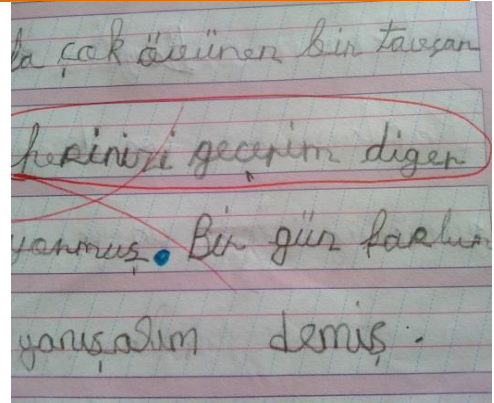 la çok övünen bir tavşan
hepinizi geçerim diger
yormuş. Bir gün kaplum
yarışalım demiş.